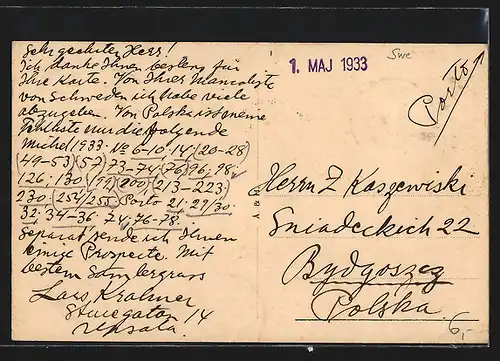 Sehr geehrter Herr!
Ich danke Ihnen bestens für
Ihre Karte. Von Ihrer Mancoliste
von Schweden ich habe viele
abzugeben. Von Polska ist meine
Fehlliste nun die folgende
Michel 1933: No 6-10, 14, (20-28)
(49-53) (57) 73-74 (76) 96, 98,
126, 130 (199) (200) 213-223,
230, (254/255) Porto 21, 29/30,
32, 34-36, 74, 76-78.
Separat sende ich Ihnen
einige Prospecte. Mit
bestem Samlergruss
Lars, Kralmer
Sturegatan 14
Upsala.
1. MAJ 1933
Swe
Porto
Herrn Z Kaszewiski
Sniadeckich 22
Bydgoszcz
Polska
6,-